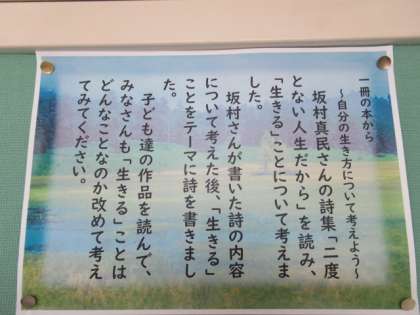 一冊の本から
～自分の生き方について考えよう～
坂村真民さんの詩集「二度
とない人生だから」を読み、
「生きる」ことについて考えま
した。
坂村さんが書いた詩の内容
について考えた後、「生きる」
ことをテーマに詩を書きまし
た。
子ども達の作品を読んで、
みなさんも「生きる」ことは
どんなことなのか改めて考え
てみてください。